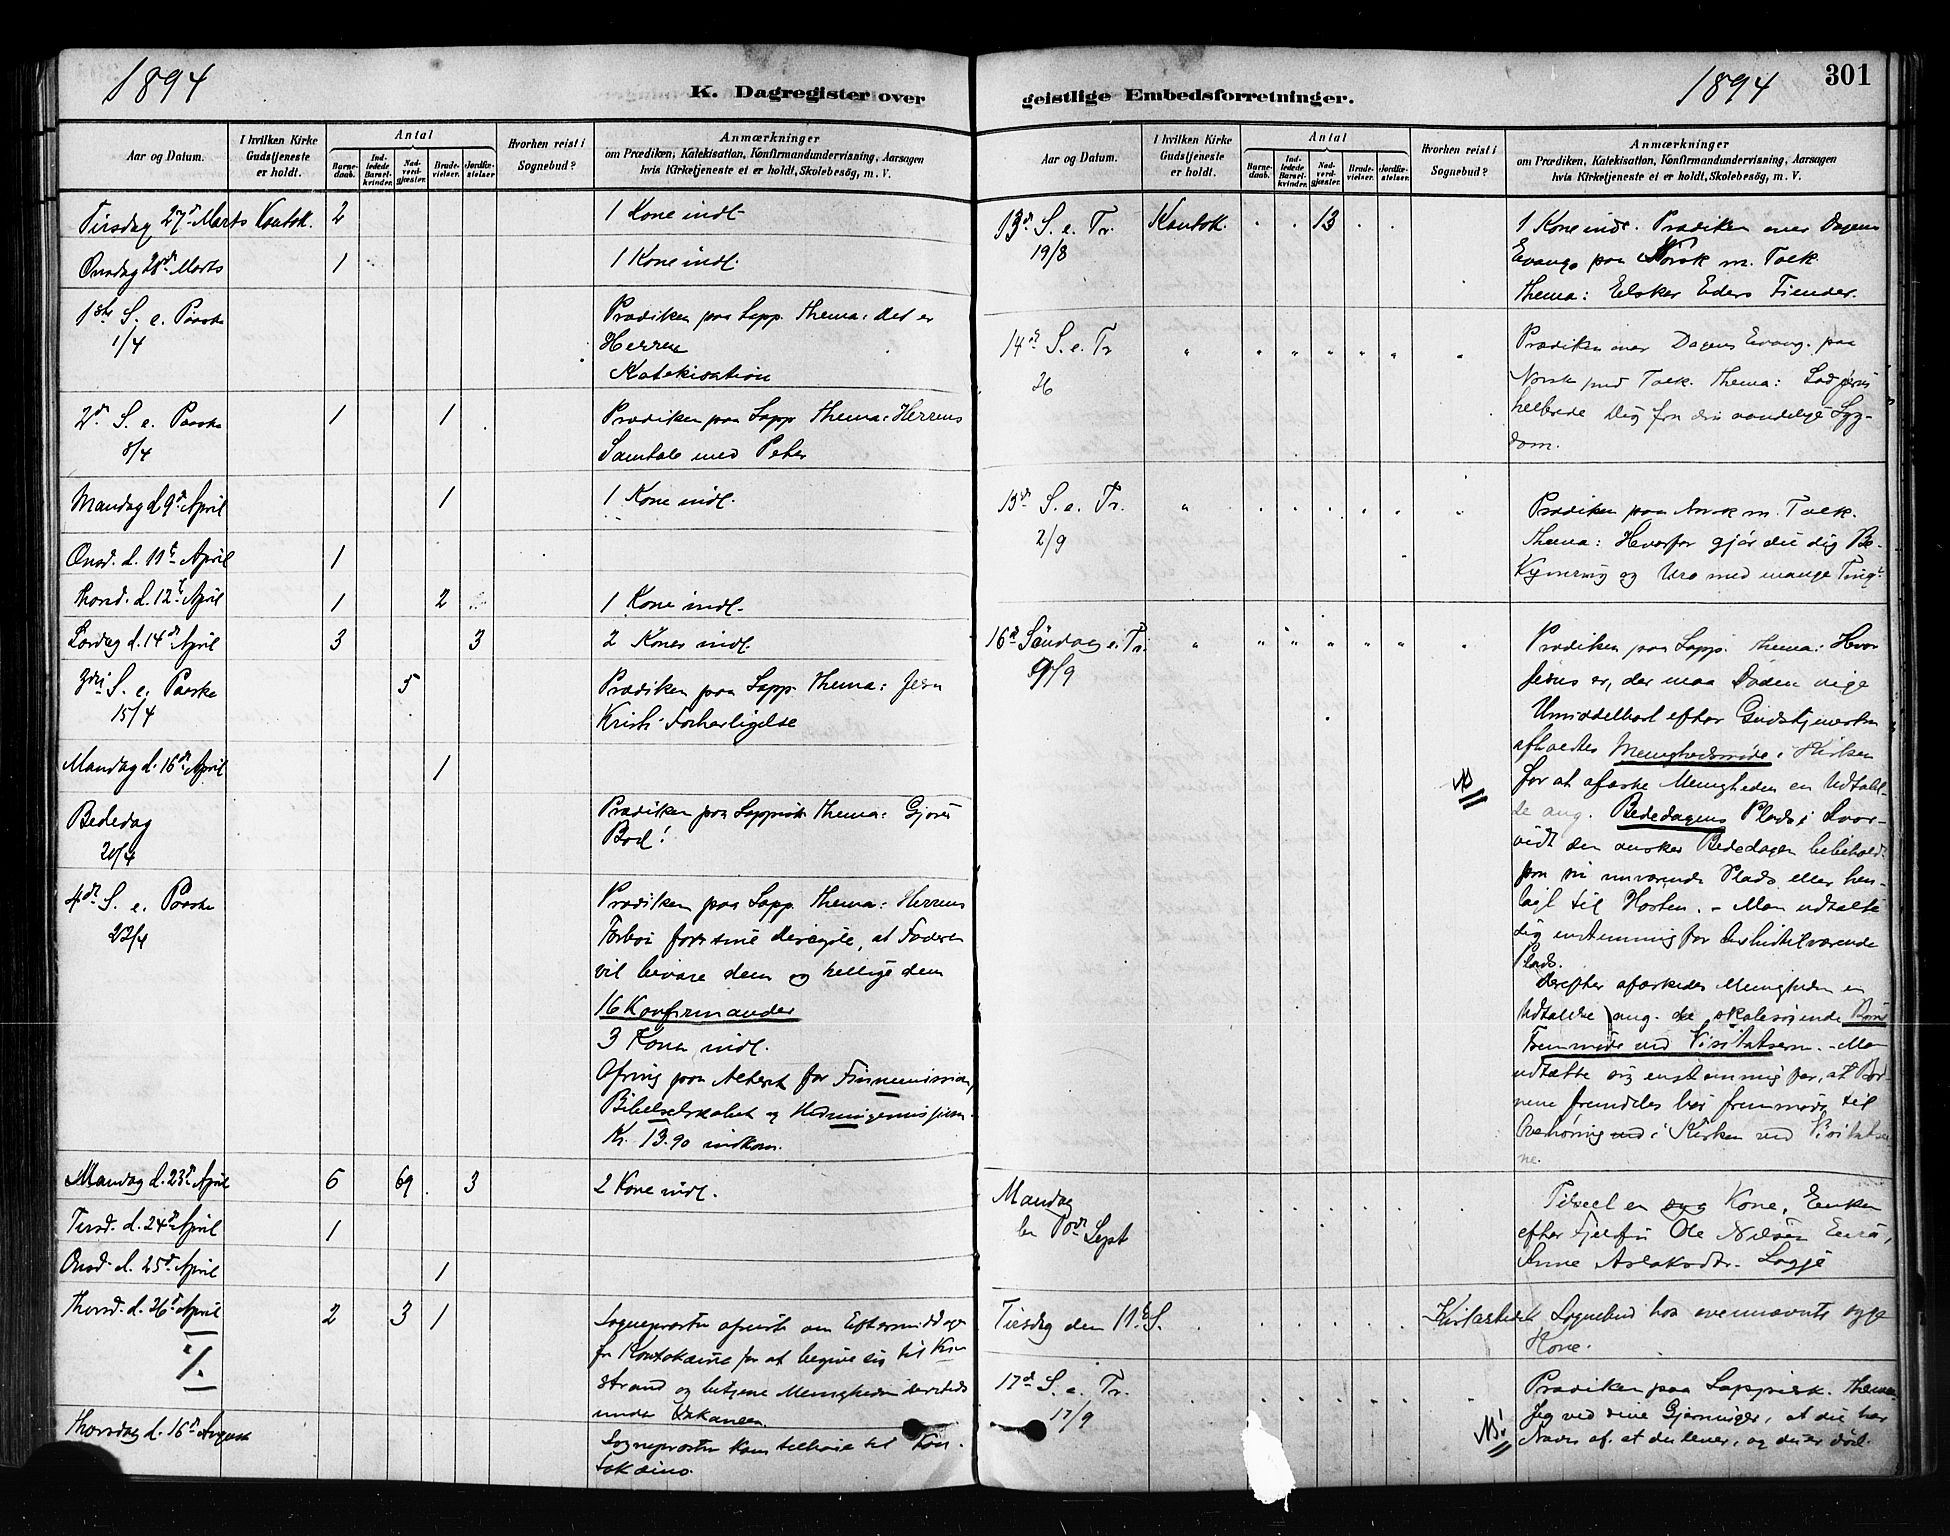 1894
K. Dagregister over
Aar og Datum.
I hvilken Kirke Gudstjeneste er holdt.
Antal
Barnedaab.
Indledede Barselkvinder.
Nadverdgjæster.
Brudevielser.
Jordfæstelser
Hvorhen reist i Sognebud?
Anmærkninger
om Prædiken, Katekisation, Konfirmandundervisning, Aarsagen
hvis Kirketjeneste ei er holdt, Skolebesøg, m. V.
Tirsdag 27de Marts Kautok. 2 1 Kone indl.
Onsdag 28de Marts 1 1 Kone indl.
1ste S. e. Paaske Prædiken paa Lapp. Thema: Det er
1/4 Herren
Katekisation
2den S. e. Paaske 1 1 Prædiken paa Lapp. Thema: Herrens
8/4 Samtale med Peter
Mandag d. 9de April 1 1 Kone indl.
Onsd. d. 11te April 1
Thorsd. d. 12te April 1 2 1 Kone indl.
Lørdag d. 14de April 3 3 2 Koner indl.
3die S. e. Paaske 5 Prædiken paa Lapp. Thema: Jesu
15/4 Kristi Forherligelse
Mandag d. 16de April 1
Bededag Prædiken paa Lappisk Thema: Gjører
20/4 Bod!
4de S. e. Paaske Prædiken paa Lapp. Thema: Herrens
22/4 Forbøn for sine Disciple, at Faderen
vil bevare dem og hellige dem
16 Konfirmander
3 Koner indl.
Ofring paa Alteret for Finnemissionen,
Bibelselskabet og Hedningemissionen
Kr. 13.90 indkom.
Mandag d. 23de April 6 69 3 2 Kone indl.
Tirsd. d. 24de April 1
Onsd. d. 25de April 1
Thorsd. d. 26de April 2 3 1 Sognepresten afreiste om Eftermiddagen
fra Kautokeino for at begive sig til
strand og betjene Menigheden
under Vakancen
Thorsdag d. 16de August Sognepresten kom tilbage til Kau-
tokeino.
1894
301
geistlige Embedsforretninger.
Aar og Datum.
I hvilken Kirke Gudstjeneste er holdt.
Antal
Barnedaab.
Indledede Barselkvinder.
Nadverdgjæster.
Brudevielser.
Jordfæstelser.
Hvorhen reist i Sognebud?
Anmærkninger
om Prædiken, Katekisation, Konfirmandundervisning, Aarsagen
hvis Kirketjeneste ei er holdt, Skolebesøg, m. V.
13de S. e. Tr. Kautok. 13 1 Kone indl. Prædiken over Dagens
19/8 Evang. paa Norsk m. Tolk.
Thema: Elsker Eders Fiender.
14de S. e. Tr. Prædiken over Dagens Evang. paa
26 Norsk med Tolk. Thema: Lad Jesus
helbrede Dig fra din aandelige Syg-
dom.
15de S. e. Tr. Prædiken paa Norsk m. Tolk.
2/9 Thema: Hvorfor gjør du dig Be-
kymring og Uro med mange Ting?
16de Søndag e. Tr. Prædiken paa Lapp. Thema: Hvor
9/9 Jesus er, der maa Døden vige
Umiddelbart efter Gudstjenesten
afholdtes Menighedsmøde i Kirken
for at afæske Menigheden en Udtalel-
se ang. Bededagens Plads, hvor-
vidt den ønsker Bededagen bibeholdt
paa sin nuværende Plads eller hen-
lagt til Høsten. – Man udtalte
sig enstemmig for den hidtilværende
Plads.
Derefter afæskedes Menigheden en
Udtalelse ang. de skolesøgende Børns
Fremmøde ved Visitatserne. – Man
udtalte sig enstemmig for, at Bør-
nene fremdeles bør fremmøde til
Overhøring i Kirken ved Visitatser-
ne.
Mandag Tilseet en syg Kone, Enken
den 10de Sept efter Fjeldfin Ole Nilsen Eira,
Anne Aslaksdtr. Logje
Tirsdag den 11te S. Kirkestedet Sognebud hos ovennævnte syge
Kone.
17de S. e. Tr. Prædiken paa Lappisk. Thema:
17/9 Jeg ved dine Gjerninger, at du har
Navn af, at du lever, og du er død.